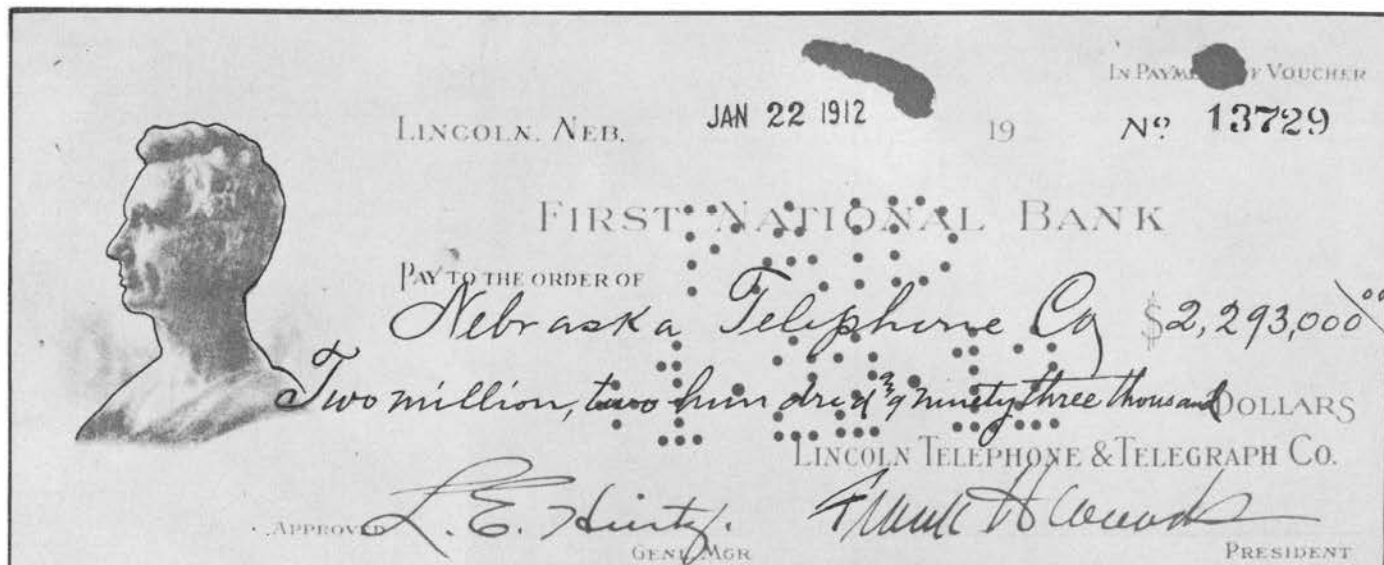 IN PAYMENT OF VOUCHER
LINCOLN, NEB. JAN 22 1912 19 No 13729
FIRST NATIONAL BANK
PAY TO THE ORDER OF
Nebraska Telephone Co $2,293,000 00
Two million, two hundred & ninety three thousand DOLLARS
LINCOLN TELEPHONE & TELEGRAPH CO.
APPROVED L. E. Hurtz. Frank H Woods
GENL MGR PRESIDENT